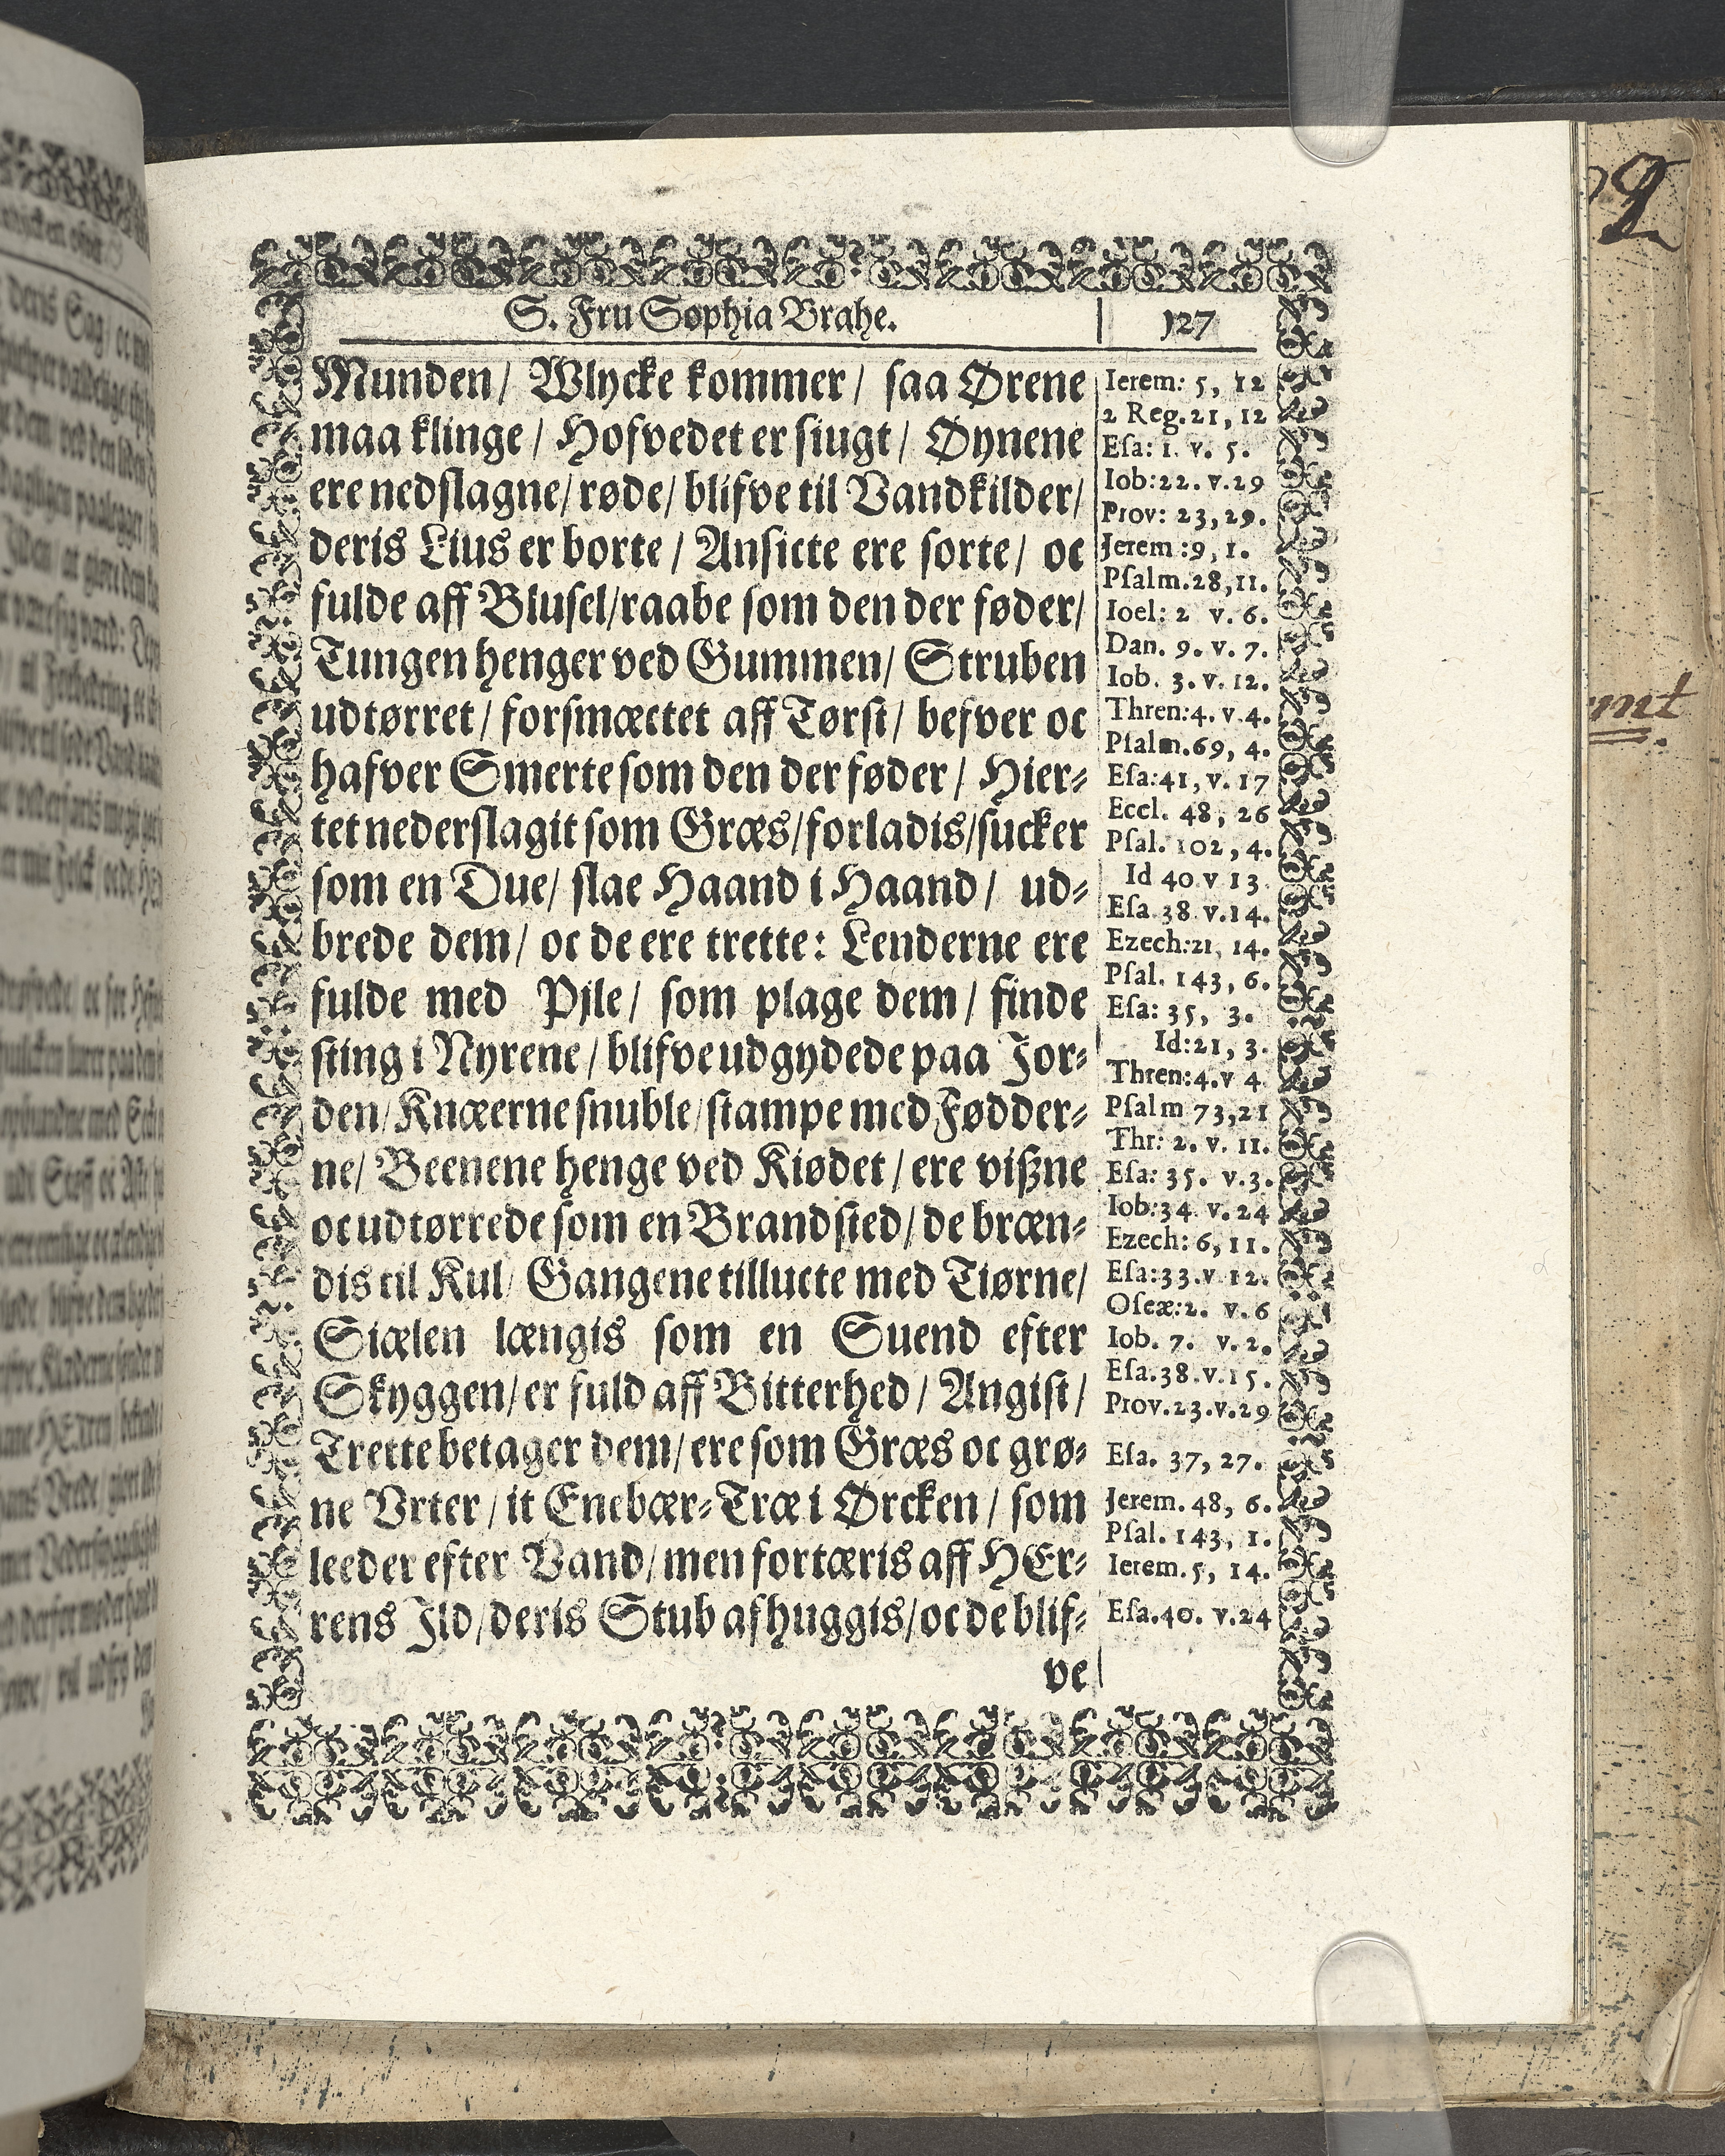 S. Fru Sophia Brahe. 127
Munden/ Wlycke kommer/ saa Ørene
maa klinge/ Hofvedet er siugt/ Øynene
ere nedslagne/ røde/ blifve til Vandkilder/
deris Lius er borte/ Ansicte ere sorte/ oc
fulde aff Blusel/ raabe som den der føder/
Tungen henger ved Gummen/ Struben
udtørret/ forsmæctet aff Tørst/ befver oc
hafver Smerte som den der føder/ Hier-
tet nederslagit som Græs/ forladis/ sucker
som en Due/ slae Haand i Haand/ ud-
brede dem/ oc de ere trette: Lenderne ere
fulde med Pjle/ som plage dem/ finde
sting i Nyrene/ blifve udgydede paa Jor-
den/ Knæerne snuble/ stampe med Fødder-
ne/ Beenene henge ved Kiødet/ ere vißne
oc udtørrede som en Brandsted/ de bræn-
dis til Kul/ Gangene tillucte med Tiørne/
Siælen længis som en Suend efter
Skyggen/ er fuld aff Bitterhed/ Angist/
Trette betager dem/ ere som Græs oc grø-
ne Vrter/ it Enebær-Træ i Ørcken/ som
leeder efter Vand/ men fortæris aff HEr-
rens Jld/ deris Stub afhuggis/ oc de blif-
ve
Ierem: 5, 12
2 Reg. 21, 12
Esa: 1. v. 5.
Iob: 22. v. 29
Prov: 23, 29.
Jerem: 9, 1.
Psalm. 28, 11.
Ioel: 2 v. 6.
Dan. 9. v. 7.
Iob. 3. v. 12.
Thren: 4. v. 4.
Psalm. 69, 4.
Esa: 41, v. 17
Eccl. 48, 26
Psal. 102, 4.
Id 40 v 13.
Esa. 38 v. 14.
Ezech: 21, 14.
Psal. 143, 6.
Esa: 35, 3.
Id: 21, 3.
Thren: 4. v 4
Psalm 73, 21
Thr: 2. v. 11.
Esa: 35. v. 3.
Iob: 34. v. 24
Ezech: 6, 11.
Esa: 33. v 12.
Oseæ: 2. v. 6
Iob. 7. v. 2.
Esa. 38. v. 15.
Prov. 23. v. 29
Esa. 37, 27.
Jerem. 48, 6.
Psal. 143, 1.
Ierem. 5, 14.
Esa. 40. v. 24